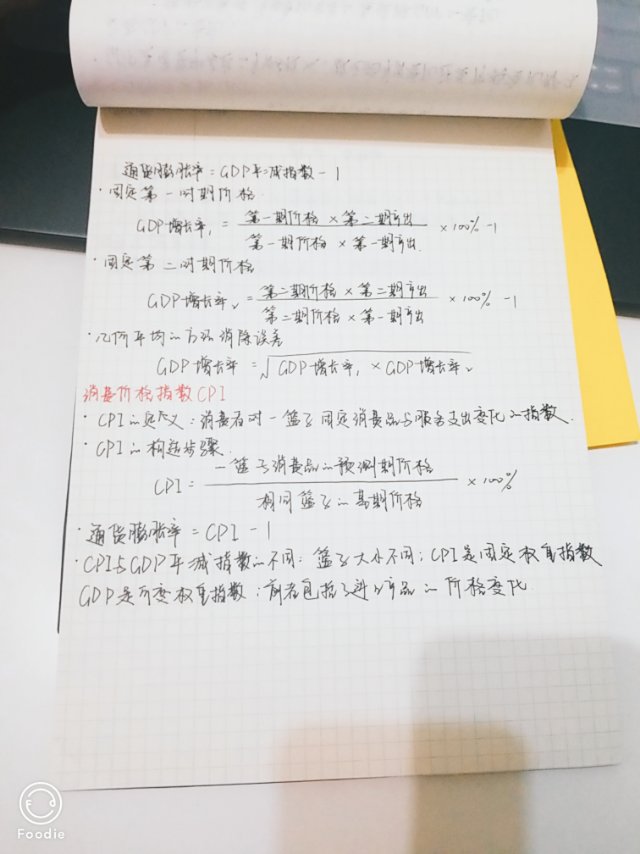 通货膨胀率=GDP平减指数-1
·固定第一时期价格
GDP增长率₁ = 第一期价格×第二期产出 / 第一期价格×第一期产出 ×100% -1
·固定第二时期价格
GDP增长率₂ = 第二期价格×第二期产出 / 第二期价格×第一期产出 ×100% -1
·几何平均的方法消除误差
GDP增长率 = √GDP增长率₁×GDP增长率₂
消费价格指数CPI
·CPI的定义:消费者对一篮子固定消费品与服务支出变化的指数.
·CPI的构造步骤.
CPI = 一篮子消费品的预测期价格 / 相同篮子的基期价格 ×100%
·通货膨胀率=CPI-1
·CPI与GDP平减指数的不同:篮子大小不同;CPI是固定权重指数
GDP是可变权重指数;前者包括了进口产品的价格变化.
Foodie